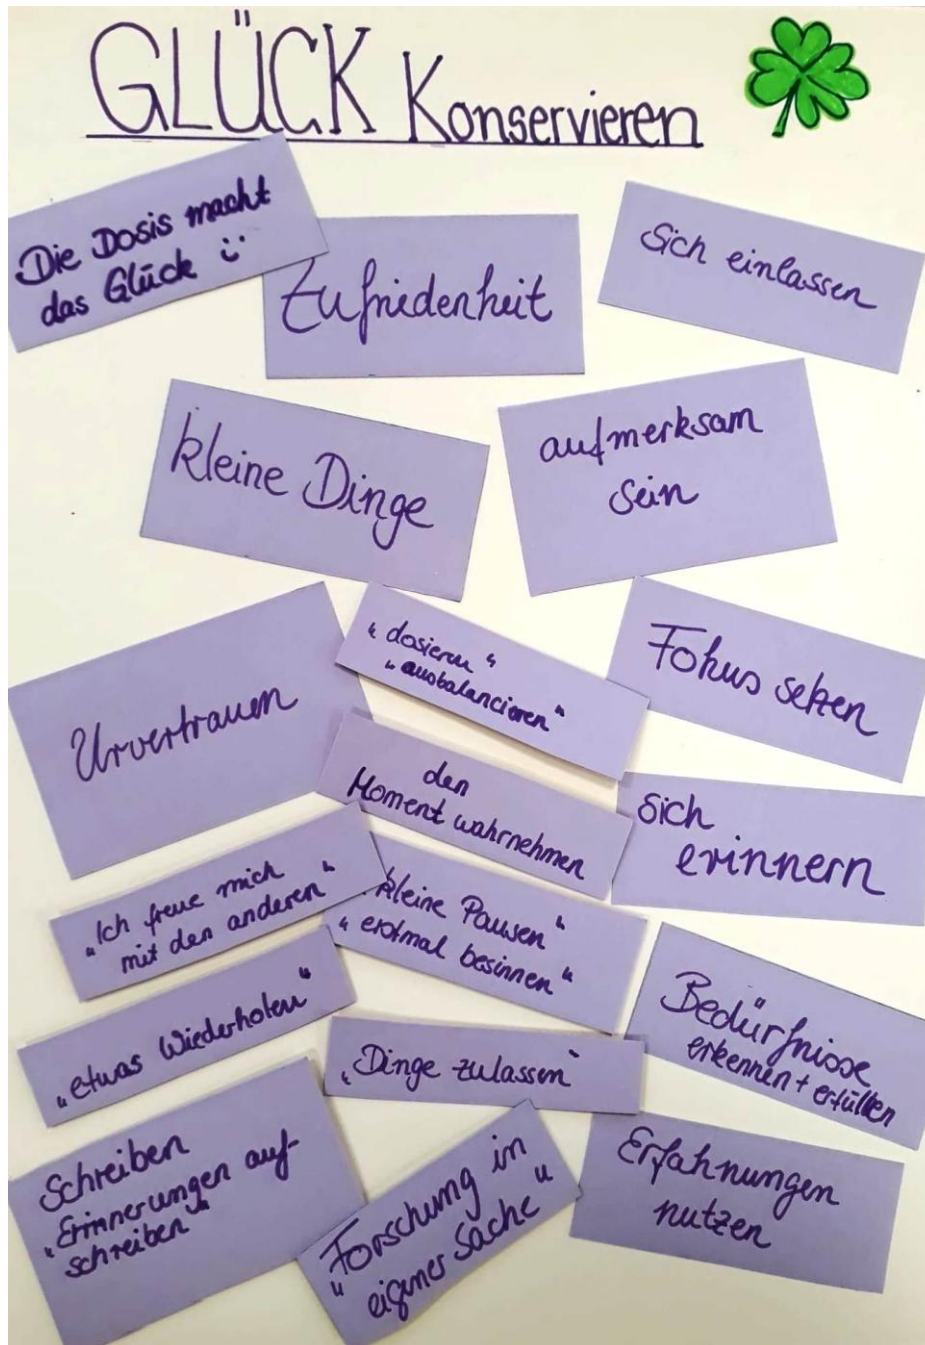 GLÜCK Konservieren
Die Dosis macht
das Glück
Zufriedenheit
Sich einlassen
kleine Dinge
aufmerksam
sein
Urvertrauen
"dosieren"
"ausbalancieren"
Fokus setzen
den
Moment wahrnehmen
Sich
erinnern
"Ich freue mich
mit den anderen"
"kleine Pausen"
"erstmal besinnen"
Bedürfnisse
erkennen + erfüllen
"etwas Wiederholen"
"Dinge zulassen"
Schreiben
"Erinnerungen auf-
schreiben"
"Forschung in
eigener Sache"
Erfahrungen
nutzen